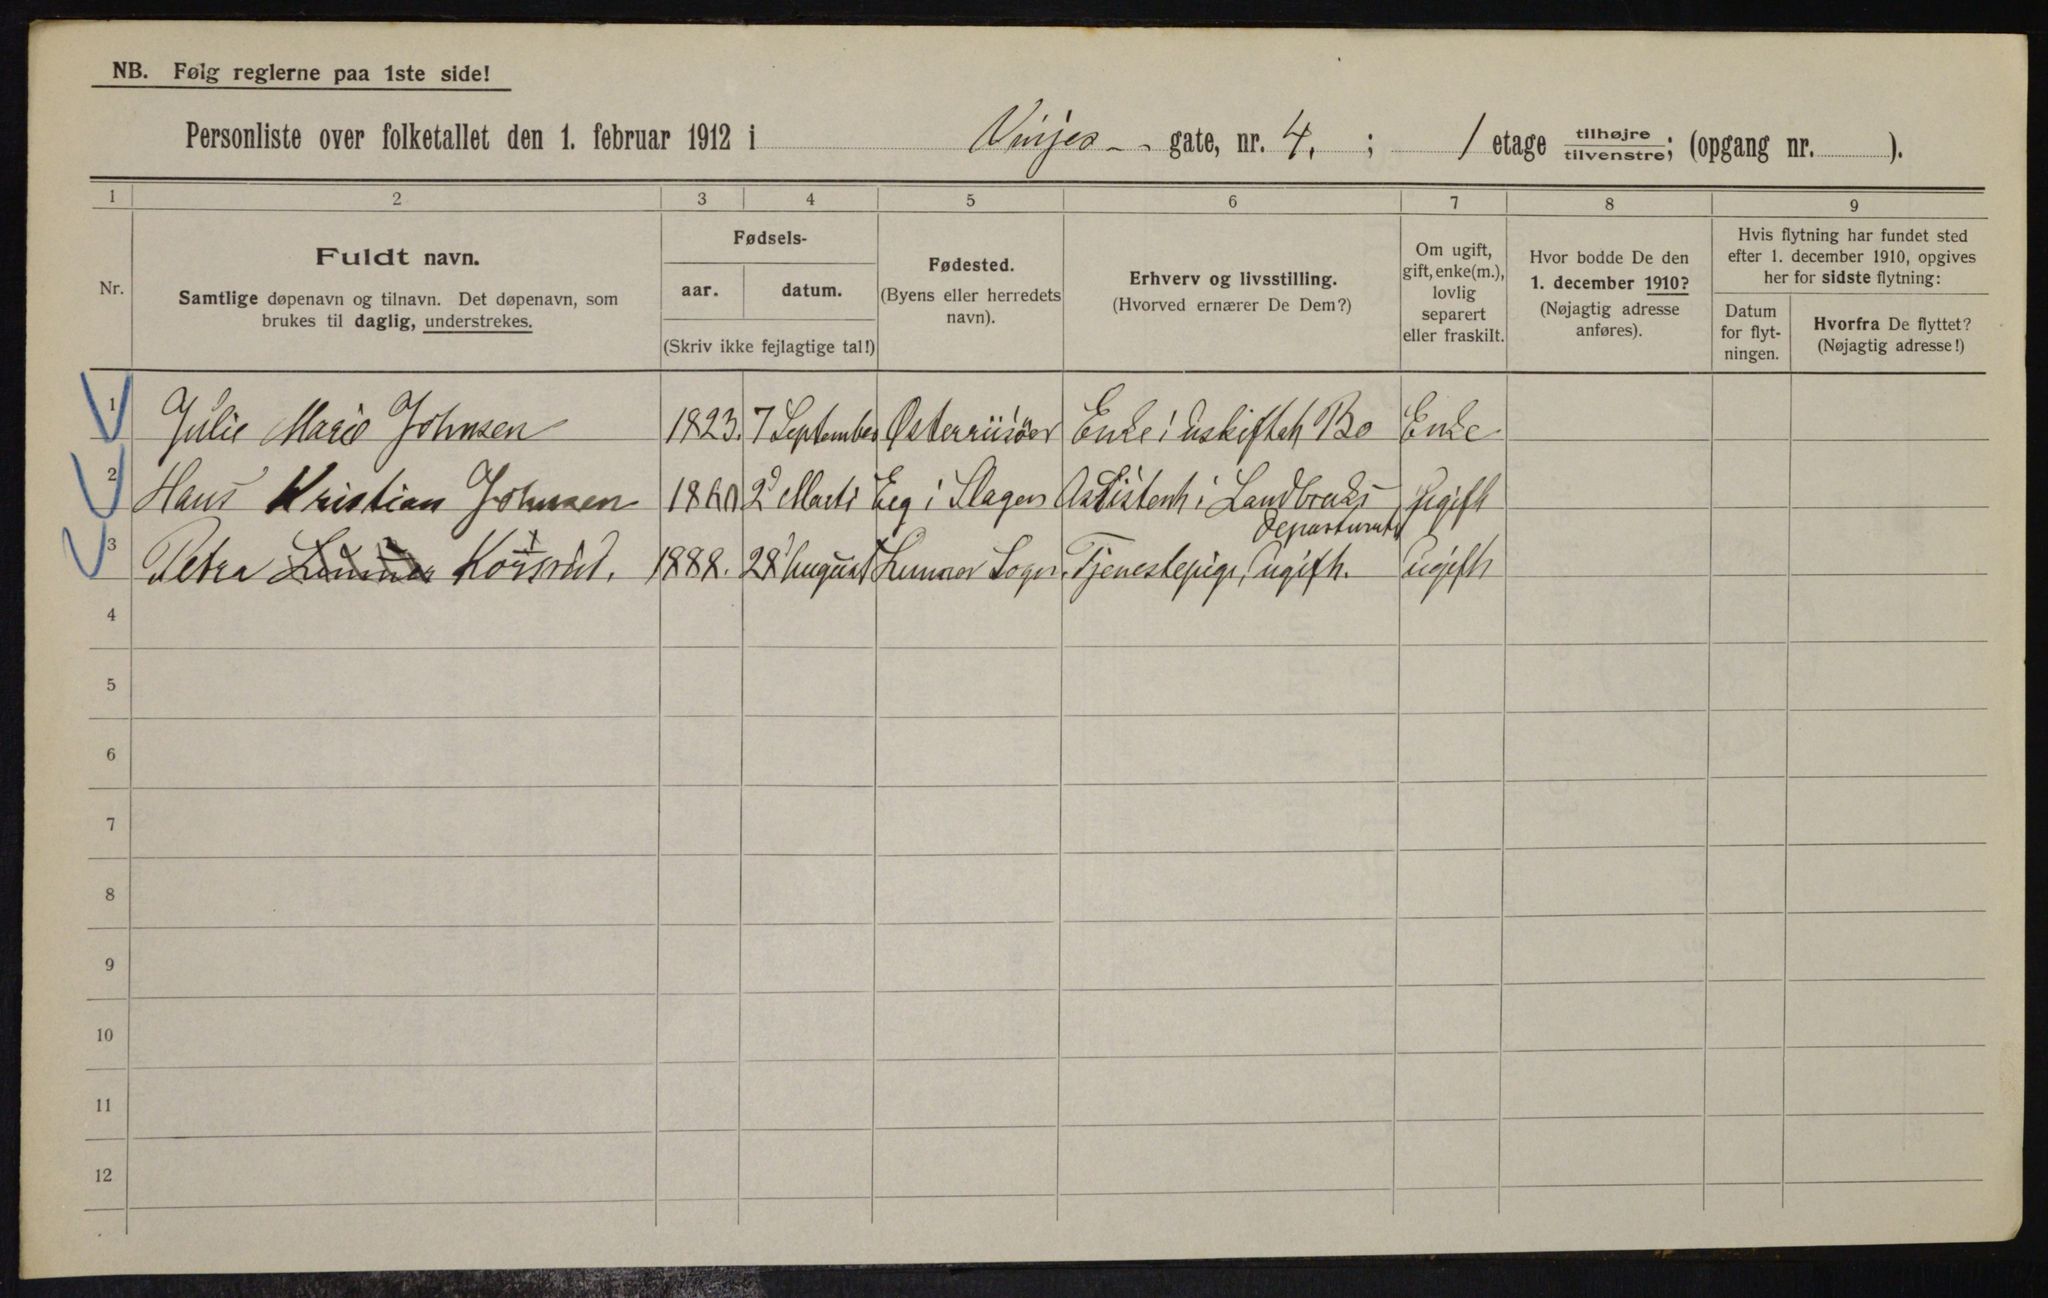 NB. Følg reglerne paa 1ste side!
Personliste over folketallet den 1. februar 1912 i Vinjes - - gate, nr. 4. ; 1 etage tilhøjre/tilvenstre; (opgang nr. ).
1 2 3 4 5 6 7 8 9
Nr.
Fuldt navn.
Samtlige døpenavn og tilnavn. Det døpenavn, som
brukes til daglig, understrekes.
Fødsels-
aar. datum.
(Skriv ikke fejlagtige tal!)
Fødested.
(Byens eller herredets
navn).
Erhverv og livsstilling.
(Hvorved ernærer De Dem?)
Om ugift,
gift, enke(m.),
lovlig
separert
eller fraskilt.
Hvor bodde De den
1. december 1910?
(Nøjagtig adresse
anføres).
Hvis flytning har fundet sted
efter 1. december 1910, opgives
her for sidste flytning:
Datum
for flyt-
ningen.
Hvorfra De flyttet?
(Nøjagtig adresse!)
1 Julie Marie Johnsen 1823. 7 September Østerriisöer Enke i Uskiftet Bo Enke
2 Hans Kristian Johnsen 1860 2 Marts Eeg i Slagen Assistent i Landbruks Ugift
Departementet
3 Petra Lunner Korsrud. 1888. 28 August Lunner Sogn. Tjenestepige, ugift. ugift
4
5
6
7
8
9
10
11
12